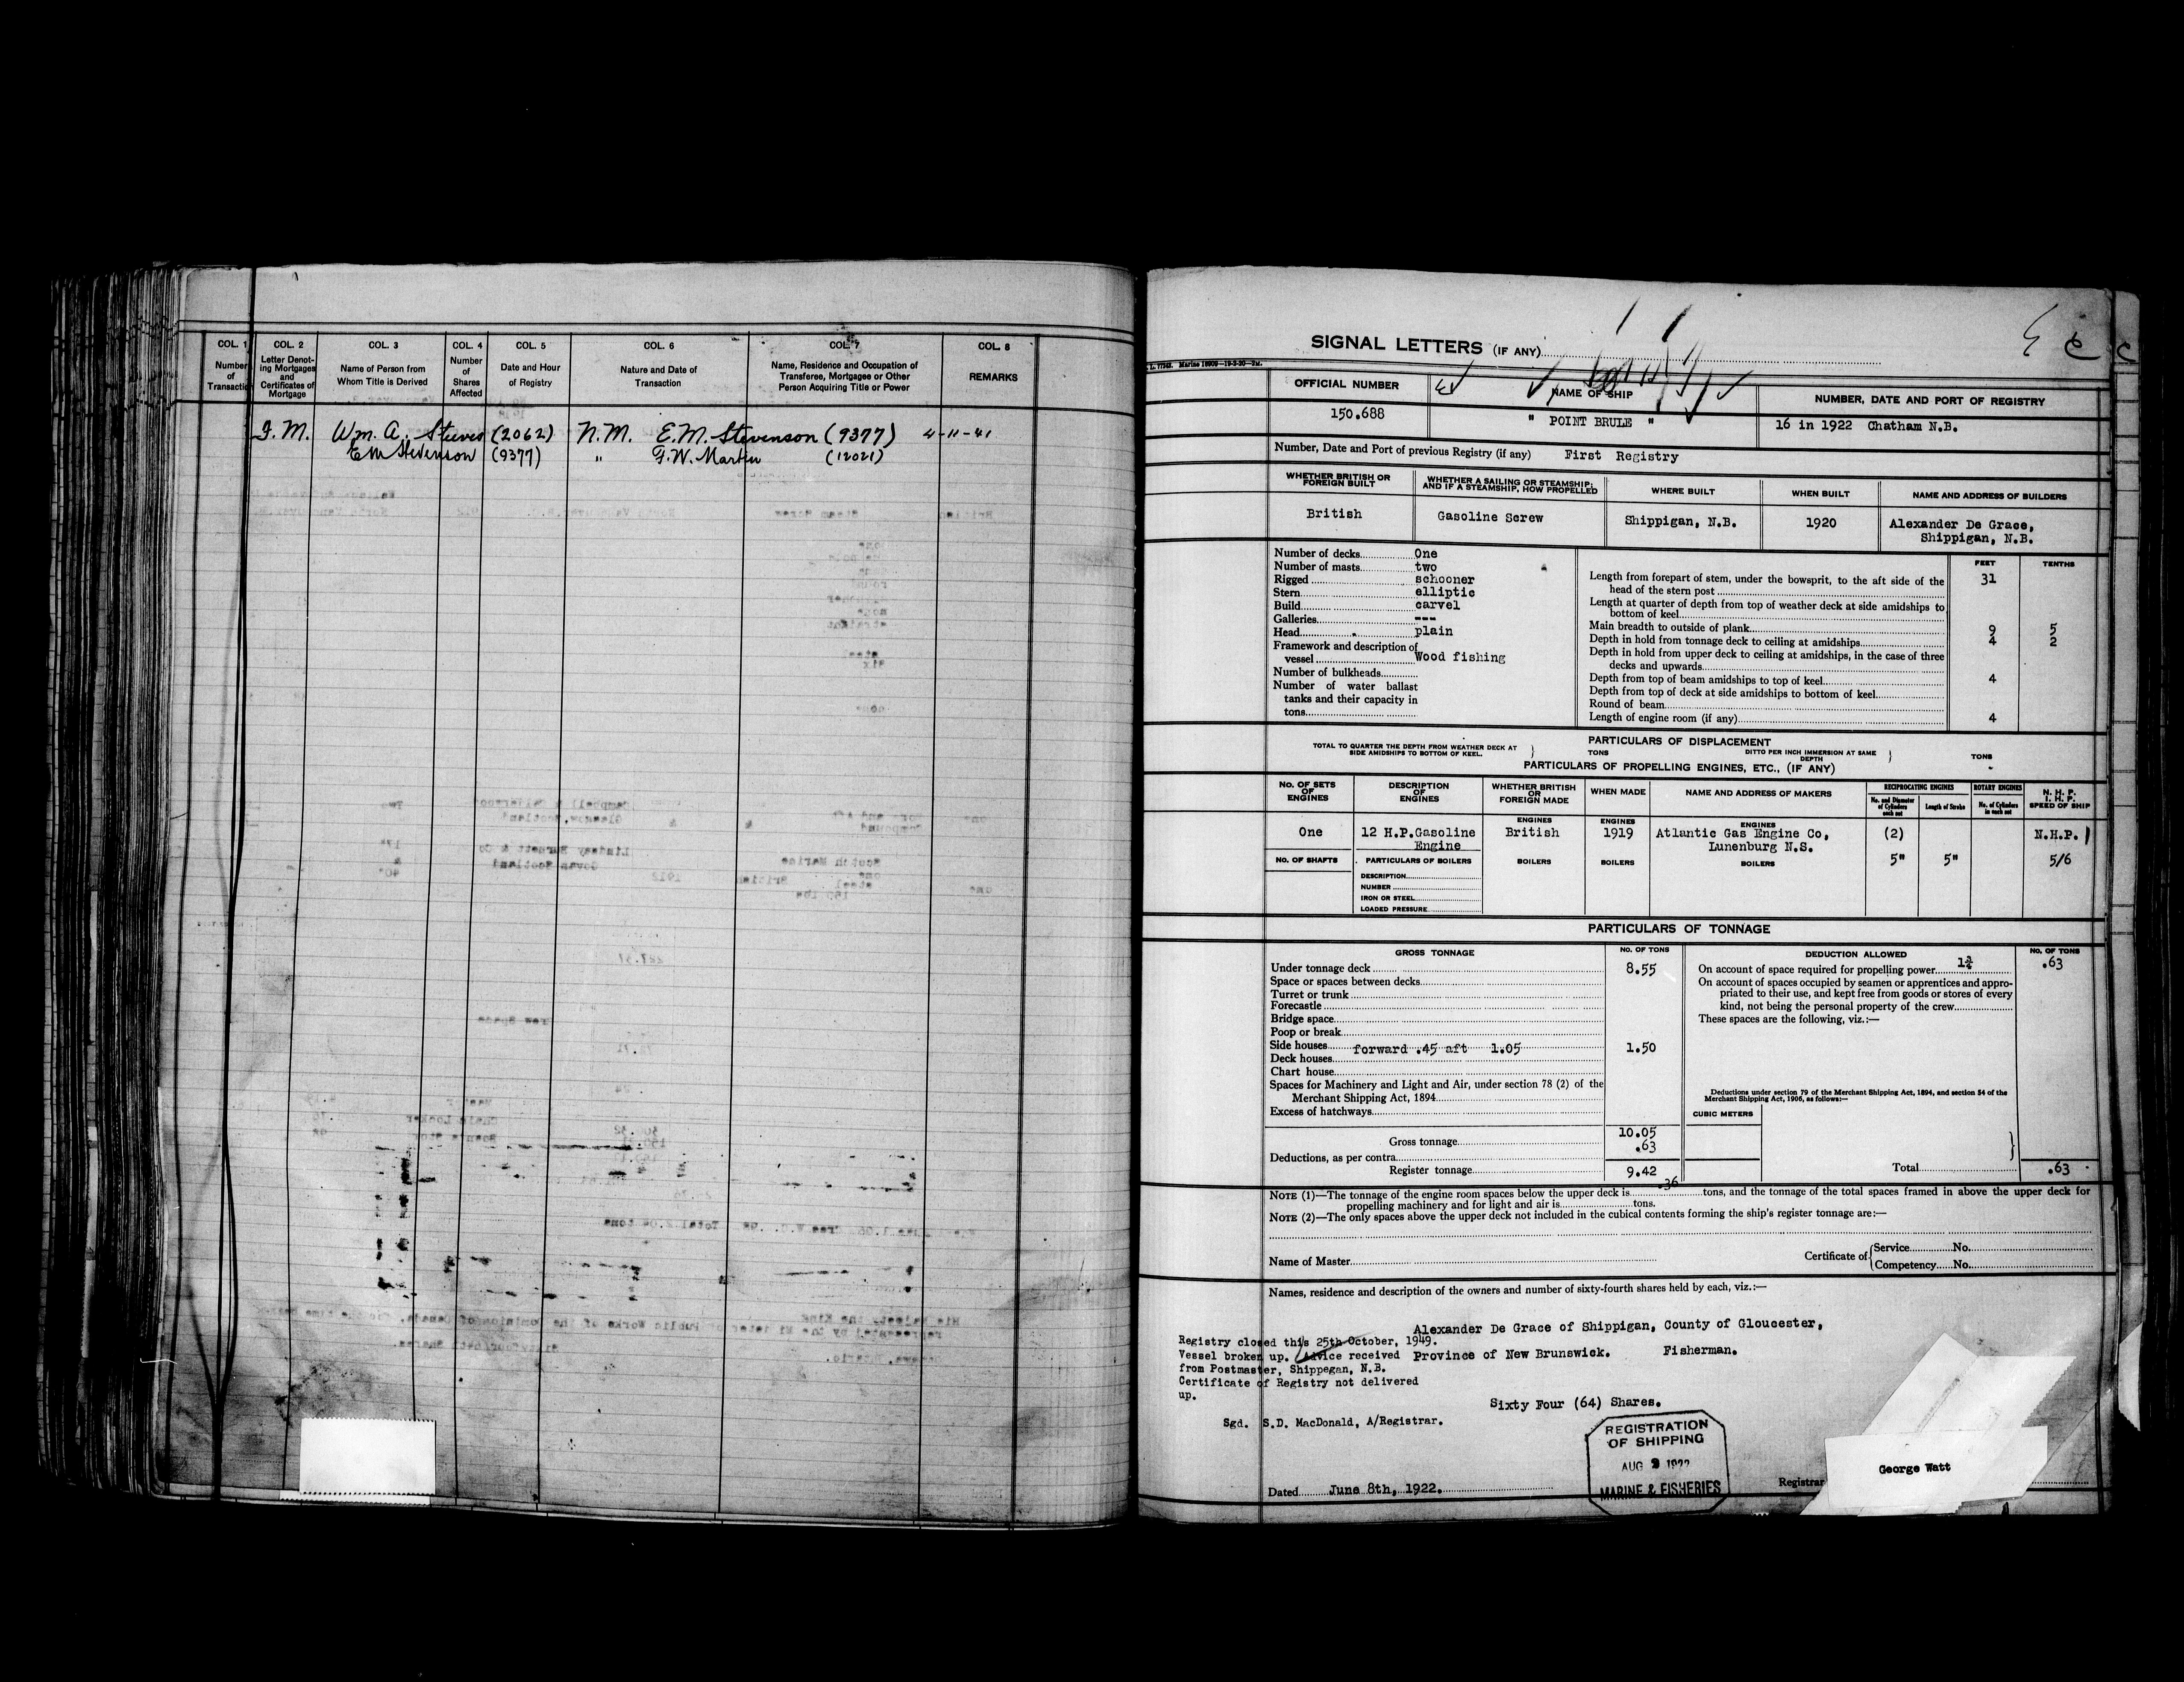 COL. 1 COL. 2 COL. 3 COL. 4 COL. 5 COL. 6 COL. 7 COL. 8
Number of Transaction
Letter Denoting Mortgages and Certificates of Mortgage
Name of Person from Whom Title is Derived
Number of Shares Affected
Date and Hour of Registry
Nature and Date of Transaction
Name, Residence and Occupation of Transferee, Mortgagee or Other Person Acquiring Title or Power
REMARKS
Wm. A. Steeves (2062) N.M. E.M. Stevenson (9377) 4-11-41
E M Stevenson (9377) " G.W. Martin (12021)
SIGNAL LETTERS (IF ANY)
OFFICIAL NUMBER
150.688
NAME OF SHIP
" POINT BRULE "
NUMBER, DATE AND PORT OF REGISTRY
16 in 1922 Chatham N.B.
Number, Date and Port of previous Registry (if any) First Registry
WHETHER BRITISH OR FOREIGN BUILT
British
WHETHER A SAILING OR STEAMSHIP; AND IF A STEAMSHIP, HOW PROPELLED
Gasoline Screw
WHERE BUILT
Shippigan, N.B.
WHEN BUILT
1920
NAME AND ADDRESS OF BUILDERS
Alexander De Grace,
Shippigan, N.B.
Number of decks One
Number of masts two
Rigged schooner
Stern elliptic
Build carvel
Galleries ---
Head plain
Framework and description of
vessel Wood fishing
Number of bulkheads
Number of water ballast
tanks and their capacity in
tons
FEET TENTHS
Length from forepart of stem, under the bowsprit, to the aft side of the
head of the stern post 31
Length at quarter of depth from top of weather deck at side amidships to
bottom of keel
Main breadth to outside of plank 9 5
Depth in hold from tonnage deck to ceiling at amidships 4 2
Depth in hold from upper deck to ceiling at amidships, in the case of three
decks and upwards
Depth from top of beam amidships to top of keel 4
Depth from top of deck at side amidships to bottom of keel
Round of beam
Length of engine room (if any) 4
PARTICULARS OF DISPLACEMENT
TOTAL TO QUARTER THE DEPTH FROM WEATHER DECK AT SIDE AMIDSHIPS TO BOTTOM OF KEEL. TONS
DITTO PER INCH IMMERSION AT SAME DEPTH TONS
PARTICULARS OF PROPELLING ENGINES, ETC., (IF ANY)
NO. OF SETS OF ENGINES
One
DESCRIPTION OF ENGINES
12 H.P.Gasoline
Engine
WHETHER BRITISH OR FOREIGN MADE
ENGINES
British
WHEN MADE
ENGINES
1919
NAME AND ADDRESS OF MAKERS
ENGINES
Atlantic Gas Engine Co,
Lunenburg N.S.
RECIPROCATING ENGINES
No. and Diameter of Cylinders each set
Length of Stroke
ROTARY ENGINES
No. of Cylinders in each set
N. H. P.
I. H. P.
SPEED OF SHIP
(2) N.H.P.
5" 5" 5/6
NO. OF SHAFTS
PARTICULARS OF BOILERS
BOILERS BOILERS BOILERS
DESCRIPTION
NUMBER
IRON OR STEEL
LOADED PRESSURE
PARTICULARS OF TONNAGE
GROSS TONNAGE NO. OF TONS
Under tonnage deck 8.55
Space or spaces between decks
Turret or trunk
Forecastle
Bridge space
Poop or break
Side houses forward .45 aft 1.05 1.50
Deck houses
Chart house
Spaces for Machinery and Light and Air, under section 78 (2) of the
Merchant Shipping Act, 1894
Excess of hatchways
Gross tonnage 10.05
Deductions, as per contra .63
Register tonnage 9.42
DEDUCTION ALLOWED NO. OF TONS
On account of space required for propelling power 1¾ .63
On account of spaces occupied by seamen or apprentices and appro-
priated to their use, and kept free from goods or stores of every
kind, not being the personal property of the crew
These spaces are the following, viz.:—
Deductions under section 79 of the Merchant Shipping Act, 1894, and section 54 of the
Merchant Shipping Act, 1906, as follows:—
CUBIC METERS
Total .63
NOTE (1)—The tonnage of the engine room spaces below the upper deck is .36 tons, and the tonnage of the total spaces framed in above the upper deck for
propelling machinery and for light and air is tons.
NOTE (2)—The only spaces above the upper deck not included in the cubical contents forming the ship's register tonnage are:—
Name of Master
Certificate of
Service No.
Competency No.
Names, residence and description of the owners and number of sixty-fourth shares held by each, viz.:—
Alexander De Grace of Shippigan, County of Gloucester,
Province of New Brunswick. Fisherman.
Sixty Four (64) Shares.
Registry closed this 25th October, 1949.
Vessel broken up. Advice received
from Postmaster, Shippegan, N.B.
Certificate of Registry not delivered
up.
Sgd. S.D. MacDonald, A/Registrar.
REGISTRATION
OF SHIPPING
AUG 9 1922
MARINE & FISHERIES
Dated June 8th, 1922.
Registrar
George Watt